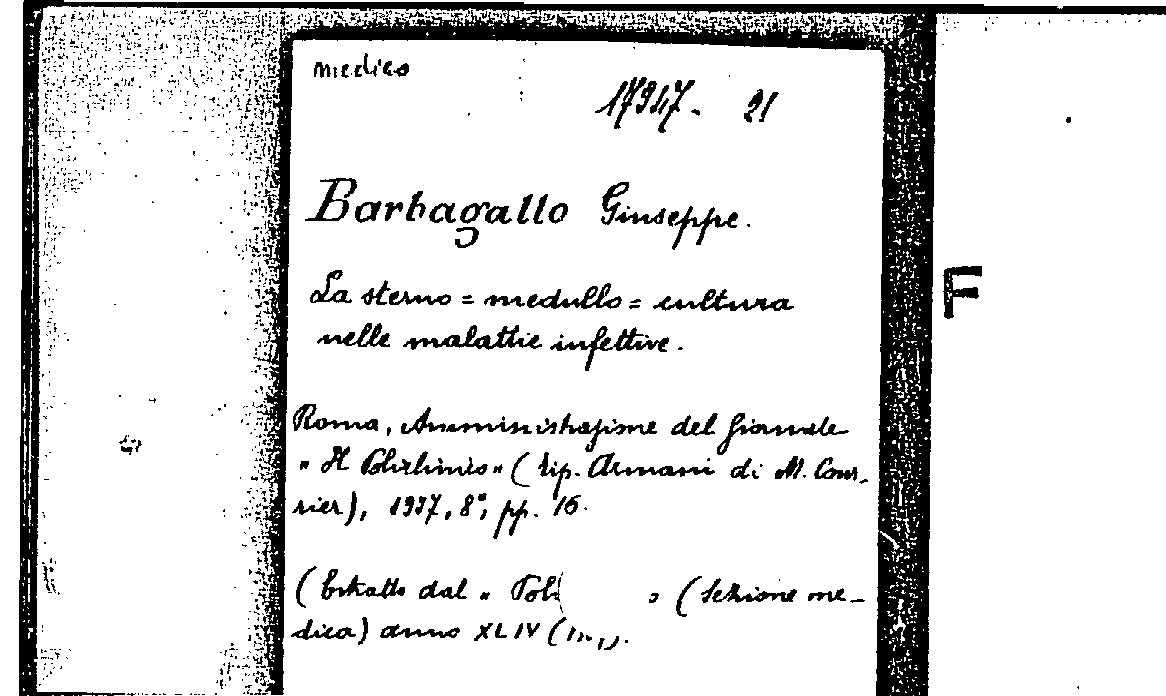 medico
17947- 21
Barbagallo Giuseppe.
La sterno = medullo = cultura
nelle malattie infettive.
F
Roma, Amministrazione del Giornale
"Il Policlinico" (tip. Armani di M. Cour-
rier), 1937, 8°, pp. 16.
(Estratto dal " (Sezione me-
dica) anno XLIV